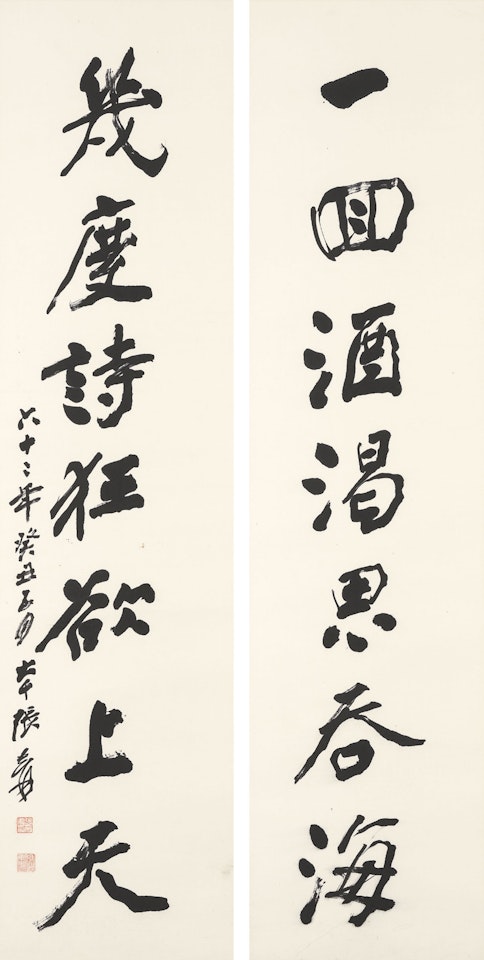 一回酒渴思吞海
幾度詩狂欲上天
六十二年癸丑五月大千張爰